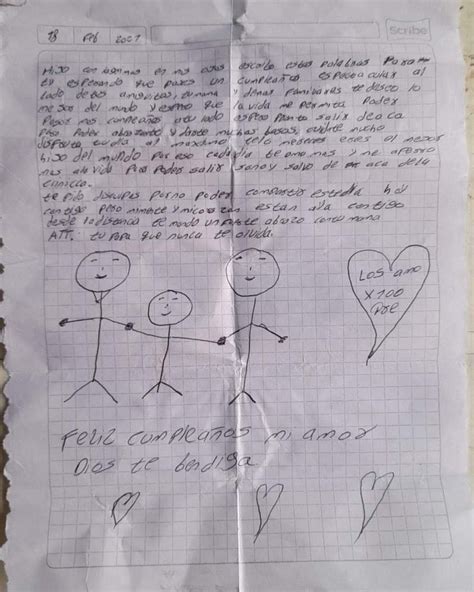 18 Feb 2021
Scribe
Hijo con lagrimas en mis ojos escribo estas palabras para
ti esperando que pases un cumpleaños espectacular al
lado de tus amiguitos, tu mama y demas familiares te deseo lo
mejor del mundo y espero que la vida me permita poder
pasar mas cumpleaños a tu lado espero pronto salir de aca
para poder abrazarte y darte muchos besos, cuidate mucho
disfruta tu dia al maximo, te lo mereces eres el mejor
hijo del mundo por eso cada dia te amo mas y me aferro
mas a la vida para poder salir sano y salvo de aca de la
clinica.
te pido disculpas por no poder compartir este dia hoy
contigo pero mi mente y mi corazon estan alla contigo
desde la distancia te mando un fuerte abrazo con tu mama
ATT: tu papa que nunca te olvida.
Los amo
x 100
pre
Feliz cumpleaños mi amor
Dios te bendiga